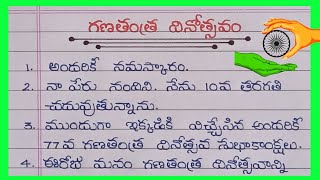 గణతంత్ర దినోత్సవం
1. అందరికీ నమస్కారం.
2. నా పేరు నందిని. నేను 10వ తరగతి
చదువుతున్నాను.
3. ముందుగా ఇక్కడికి విచ్చేసిన అందరికీ
77వ గణతంత్ర దినోత్సవ శుభాకాంక్షలు.
4. ఈరోజు మనం గణతంత్ర దినోత్సవాన్ని